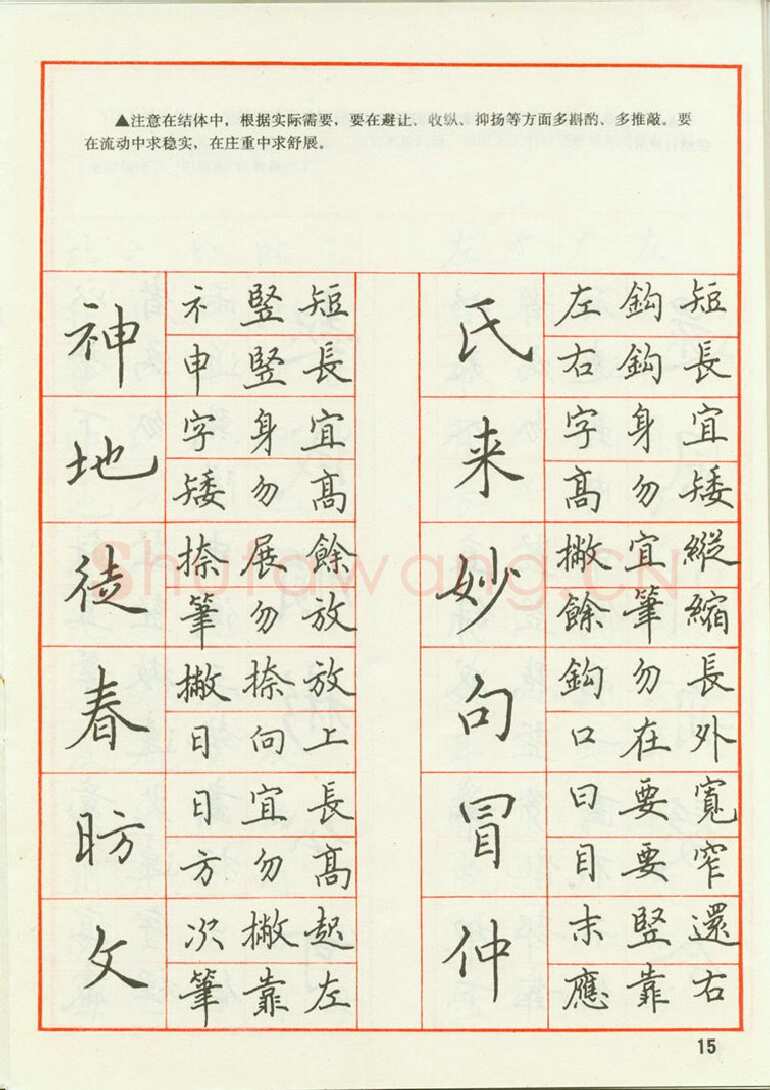 ▲注意在结体中，根据实际需要，要在避让、收纵、抑扬等方面多斟酌、多推敲。要
在流动中求稳实，在庄重中求舒展。
神
礻竖短
申竖長
地
字身宜
矮勿高
徒
捺展餘
筆勿放
春
撇捺放
日向上
昉
日宜長
方勿高
文
次撇起
筆靠左
氏
左鈎短
右鈎長
来
字身宜
高勿矮
妙
撇宜縱
餘筆縮
句
鈎勿長
口在外
冒
曰要寬
目要窄
仲
末竖還
應靠右
Shufawang.CN
15